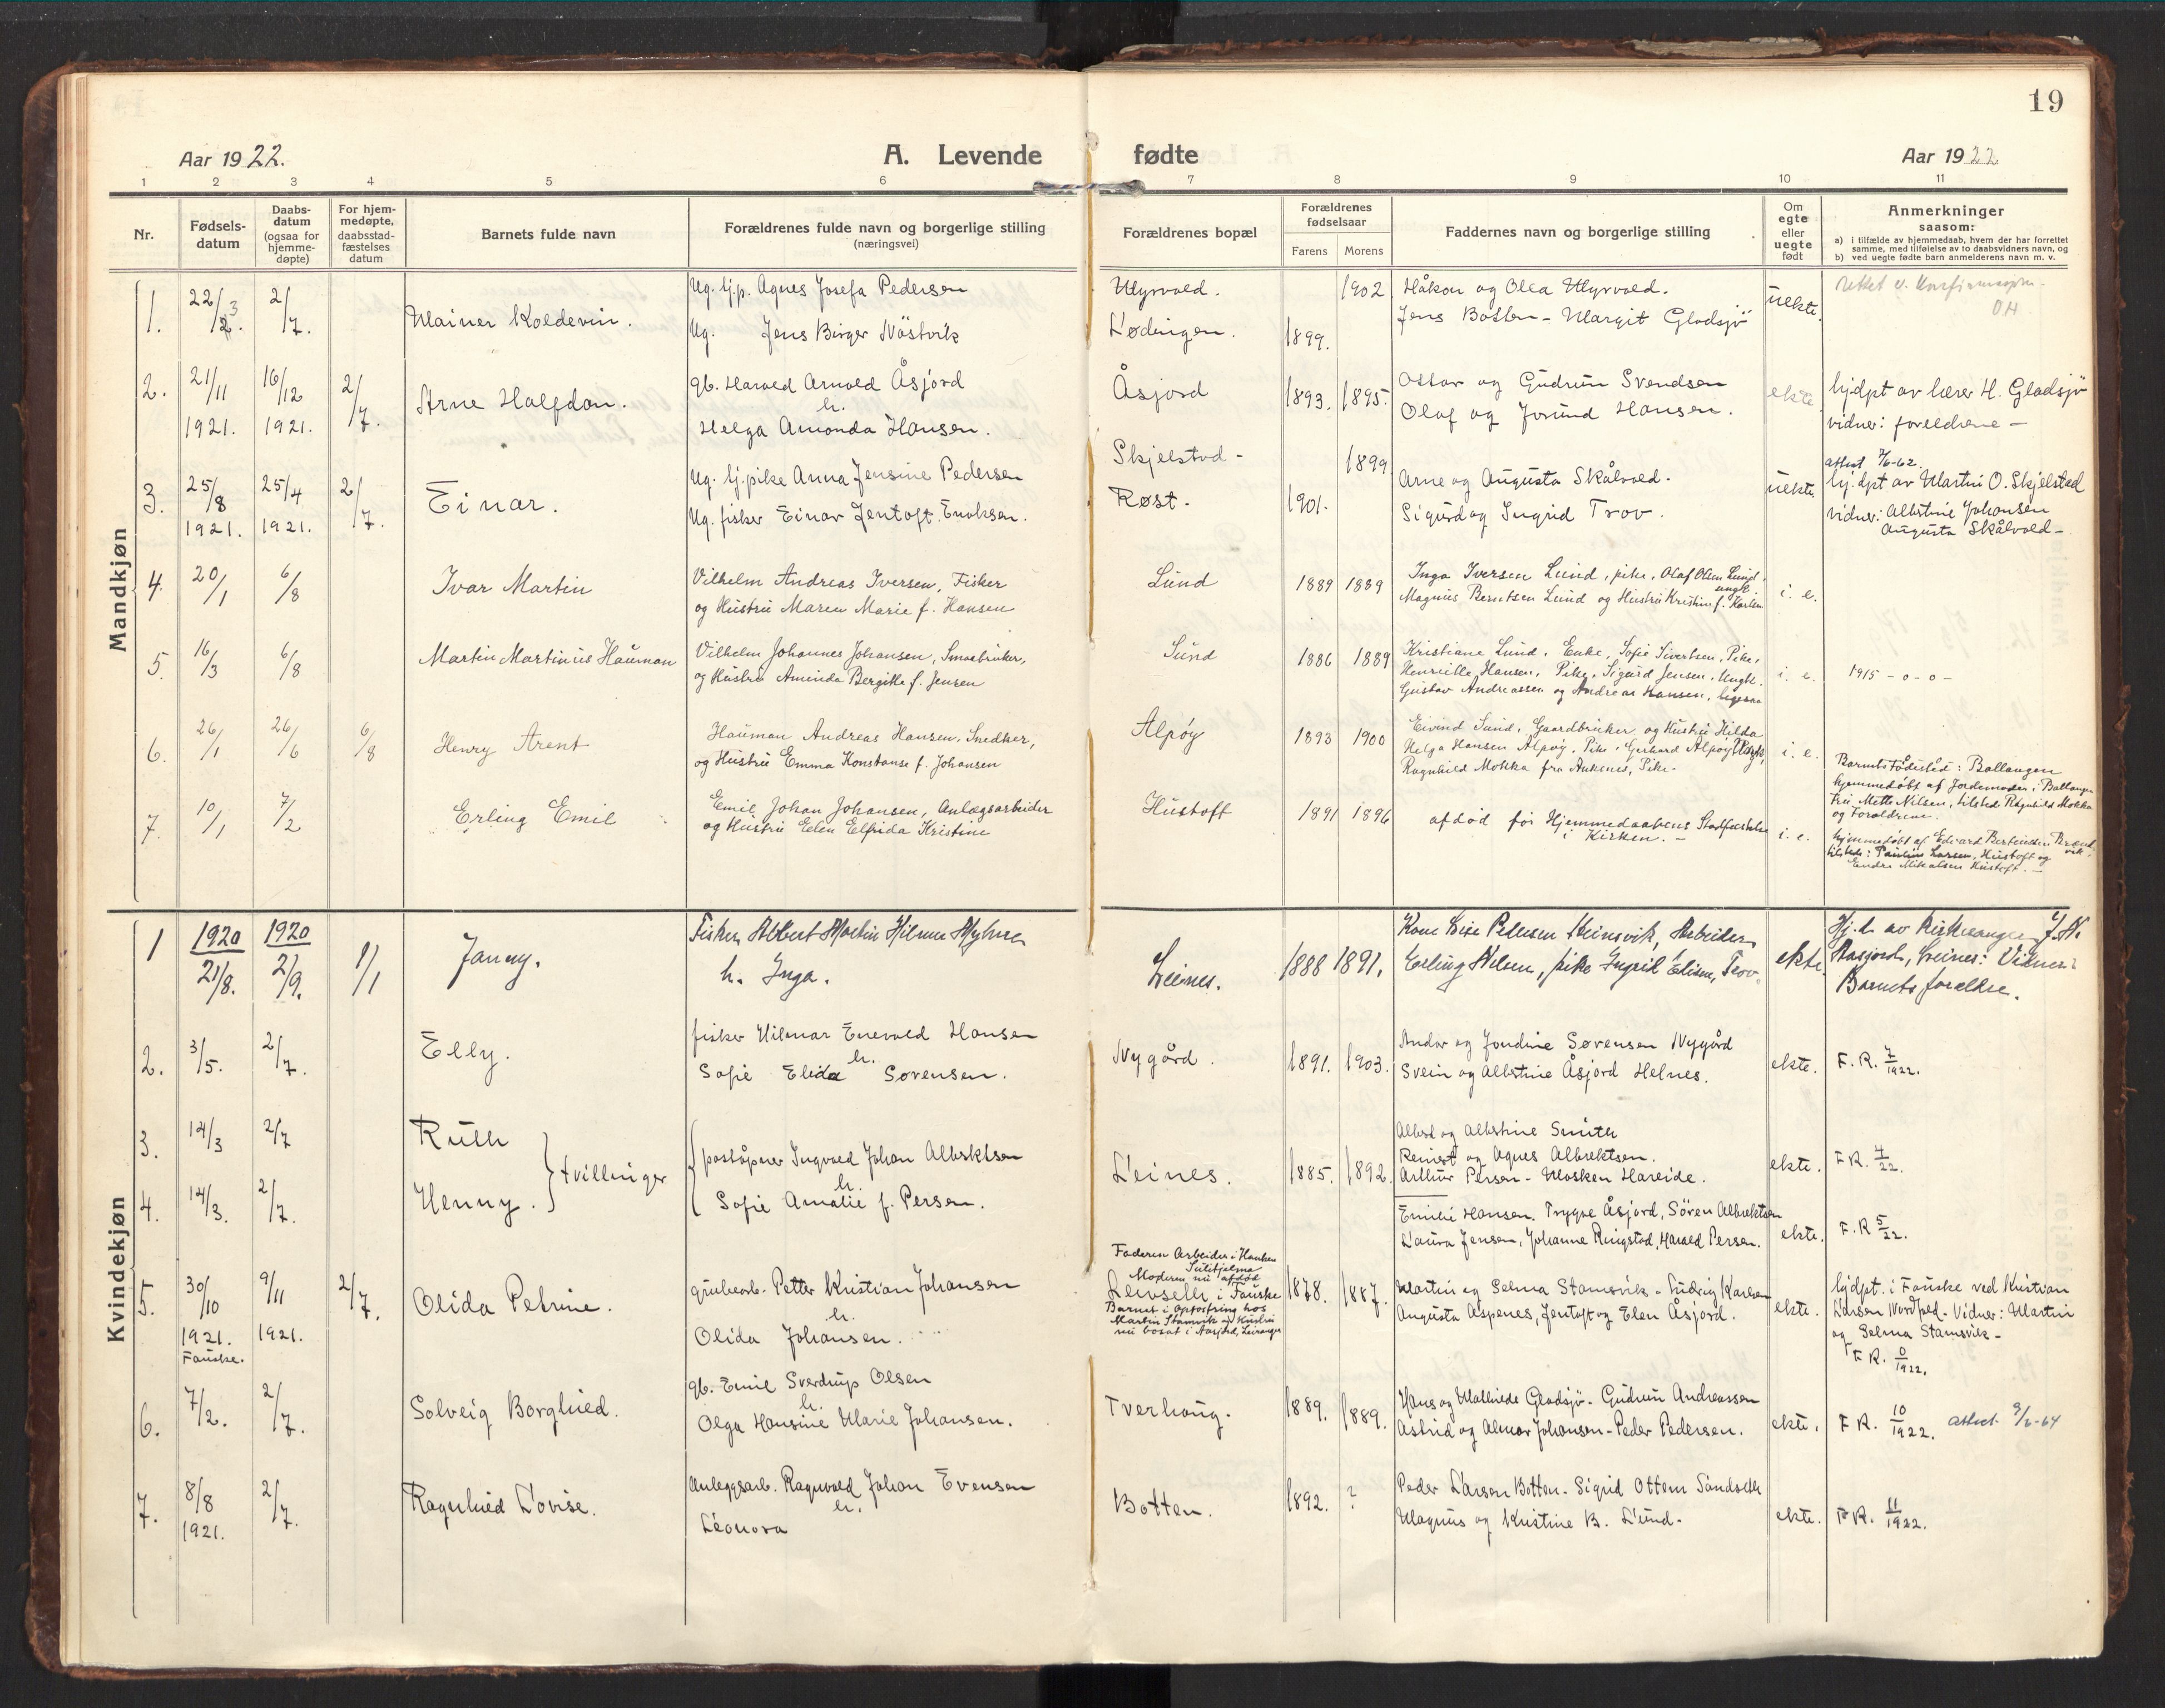 19
Aar 1922.
A. Levende fødte
Aar 1922
1 2 3 4 5 6 7 8 9 10 11
Nr.
Fødsels-
datum
Daabs-
datum
(ogsaa for
hjemme-
døpte)
For hjem-
medøpte,
daabsstad-
fæstelses
datum
Barnets fulde navn
Forældrenes fulde navn og borgerlige stilling
(næringsvei)
Forældrenes bopæl
Forældrenes
fødselsaar
Farens Morens
Faddernes navn og borgerlige stilling
Om
egte
eller
uegte
født
Anmerkninger
saasom:
a) i tilfælde av hjemmedaab, hvem der har forrettet
samme, med tilføielse av to daabsvidners navn, og
b) ved uegte fødte barn anmelderens navn m. v.
Mandkjøn
1. 22/3 2/7. Mainer Koldevin.
Ug. tj.p. Agnes Josefa Pedersen
Ug. Jens Birger Nöstvik
Myrvold. 1902
Lødingen. 1899.
Håkon og Olea Myrvold.
Jens Botten - Margit Gladsjö
uekte.
rettet v. Konfirmasjon.
OH
2. 21/11 1921. 16/12 1921. 2/7. Arne Halfdan.
gb. Harald Arnold Åsjord
h.
Helga Amanda Hansen.
Åsjord 1893. 1895.
Ottar og Gudrun Svendsen
Olaf og Jorund Hansen.
ekte
hjdpt av lærer H. Gladsjö
vidner: foreldrene -
3. 25/8 1921. 25/4 1921. 2/7. Einar.
Ug. tj.pike Anna Jensine Pedersen
Ug. fisker Einar Jentoft Enoksen.
Skjelstad - 1899
Røst. 1901.
Arne og Augusta Skålvold.
Sigurd og Ingrid Trov.
uekte.
attest 7/6-62.
hj.dpt av Martin O. Skjelstad
vidner: Albertine Johansen
Augusta Skålvold -
4. 20/1 6/8 Ivar Martin
Vilhelm Andreas Iversen, Fisker
og Hustru Maren Marie f. Hansen
Lund 1889 1889
Inga Iversen Lund, pike, Olaf Olsen Lund,
ungk.
Magnus Berntsen Lund og Hustru Kristine f. Karlsen
i. e.
5. 16/3 6/8 Martin Martinius Hauman
Vilhelm Johannes Johansen, Smaabruker,
og Hustru Aminda Bergitte f. Jensen
Sund 1886 1889
Kristiane Lund, Enke, Sofie Sivertsen, Pike,
Henriette Hansen, Pike, Sigurd Jensen, Ungk.
Gustav Andreassen og Andreas Hansen, ligesaa
i. e.
1915 - o - o -
6. 26/1 26/6 6/8 Henry Arent
Hauman Andreas Hansen, Snedker,
og Hustru Emma Konstanse f. Johansen
Alpøy 1893 1900
Eivind Sund, Gaardbruker og Hustru Hilda
Helga Hansen Alpøy, Pike, Gerhard Alpøy, Ungk,
Ragnhild Mokka fra Ankenes, Pike.
i. e.
Barnets Fødested: Ballangen
hjemmedøbt af Jordemoder i Ballangen
Fru Mette Nilsen, tilsted Ragnhild Mokka
og Forældrene.
7. 10/1 7/2 Erling Emil
Emil Johan Johansen, Anlægsarbeider
og Hustru Elen Elfrida Kristine
Hustoft 1891 1896
afdød før Hjemmedaabens Stadfæstelse
i Kirken. -
i. e.
hjemmedøbt af Edvard Berteussen Brændvik,
tilsteds: Pauline Larsen, Hustoft og
Endre Mikalsen Hustoft. -
Kvindekjøn
1 1920 21/8. 1920 2/9. 1/1 Janny.
Fisker Albert Martin Hilmar Myhre
h. Inga.
Leines. 1888 1891.
Kone Lise Pettersen Steinsvik, Arbeider
Erling Nilsen, pike Ingrid Elisen, Trov.
ekte.
Hj.d. av Kirkesanger J.N.
Aasjord, Leines: Vidner:
Barnets foreldre.
2. 3/5. 2/7. Elly.
fisker Hilmar Enevald Hansen
h.
Sofie Elida Sørensen.
Nygård. 1891. 1903.
Andor og Jondine Sørensen Nygård
Svein og Albertine Åsjord Helnes.
ekte.
F. R. 7/1922.
3. 14/3 2/7 Ruth
4. 14/3. 2/7. Henny. } tvillinger
poståpner Ingvald Johan Albrektsen
h.
Sofie Amalie f. Persen.
Leines. 1885. 1892.
Albert og Albertine Smith
Reinert og Agnes Albrektsen.
Arthur Persen - Masken Hareide.
ekte.
FR. 4/22.
Emilie Hansen. Trygve Åsjord, Sören Albrektsen
Laura Jensen, Johanne Ringstad, Harald Persen.
ekte.
F. R 5/22.
5. 30/10 1921. Fauske. 9/11 1921. 2/7. Olida Petrine.
grubearb. Petter Kristian Johansen
h.
Olida Johansen.
Faderen Arbeider i Hanken
Sulitjelma
Moderen nu afdød
Leivseth i Fauske
Barnet i opfostring hos
Martin Stamvik og Hustru
nu bosat i Aasjord, Leiranger
1878. 1887.
Martin og Selma Stamsvik - Ludvig Karlsen
Augusta Aspenes, Jentoft og Elen Åsjord.
ekte.
hjdpt. i Fauske ved Kristian
Larsen Nordfjed - Vidner: Martin
og Selma Stamsvik -
F R. 0/1922.
6. 7/2. 2/7. Solveig Borghied.
gb. Emil Sverdrup Olsen
h.
Olga Hansine Marie Johansen.
Tverhaug. 1889. 1889.
Hans og Mathilde Gladsjö - Gudrun Andreassen
Astrid og Almar Johansen - Peder Pedersen.
ekte.
F R. 10/1922. attest 9/6-64
7. 8/8 1921. 2/7. Ragnhied Lovise.
Anleggsarb. Ragnvald Johan Evensen
h.
Leonora
Botten. 1892. ?
Peder Larsen Botten - Sigrid Ottem Sandseth
Magnus og Kristine B. Lund -
ekte.
F R. 11/1922.